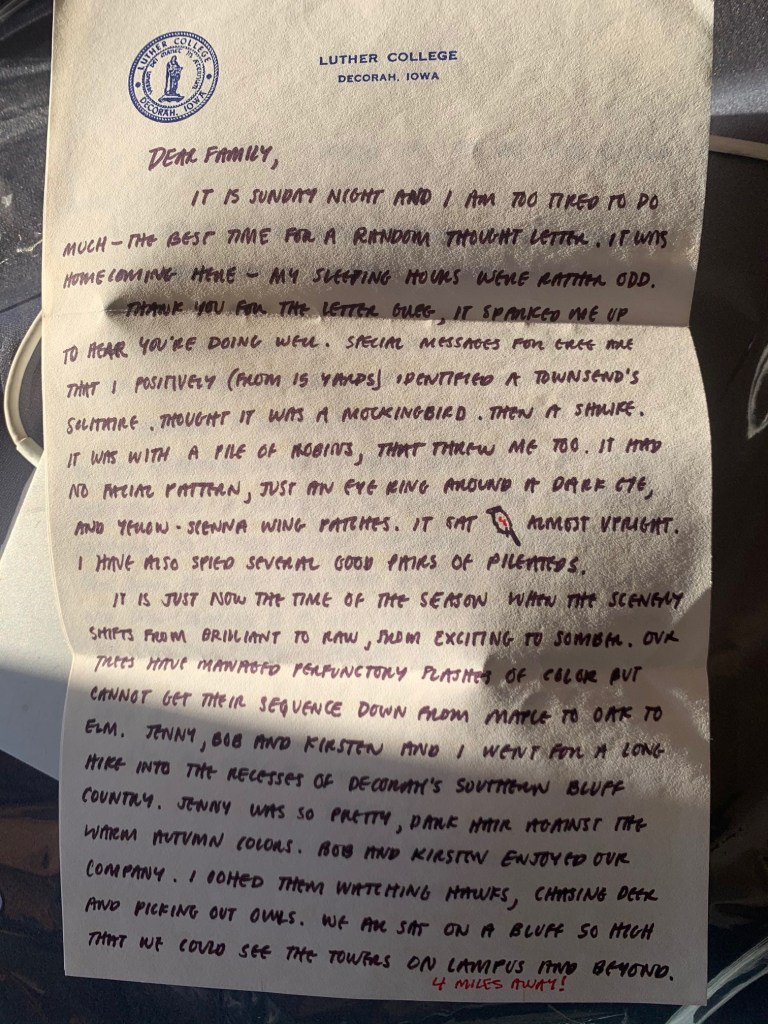 LUTHER COLLEGE
DECORAH, IOWA
LUTHER COLLEGE
DECORAH, IOWA
DEAR FAMILY,
IT IS SUNDAY NIGHT AND I AM TOO TIRED TO DO
MUCH – THE BEST TIME FOR A RANDOM THOUGHT LETTER. IT WAS
HOMECOMING HERE – MY SLEEPING HOURS WERE RATHER ODD.
THANK YOU FOR THE LETTER GREG, IT SPARKED ME UP
TO HEAR YOU'RE DOING WELL. SPECIAL MESSAGES FOR GREG ARE
THAT I POSITIVELY (FROM 15 YARDS) IDENTIFIED A TOWNSEND'S
SOLITAIRE. THOUGHT IT WAS A MOCKINGBIRD. THEN A SHRIKE.
IT WAS WITH A PILE OF ROBINS, THAT THREW ME TOO. IT HAD
NO FACIAL PATTERN, JUST AN EYE RING AROUND A DARK EYE,
AND YELLOW-SIENNA WING PATCHES. IT SAT ALMOST UPRIGHT.
I HAVE ALSO SPIED SEVERAL GOOD PAIRS OF PILEATEDS.
IT IS JUST NOW THE TIME OF THE SEASON WHEN THE SCENERY
SHIFTS FROM BRILLIANT TO RAW, FROM EXCITING TO SOMBER. OUR
TREES HAVE MANAGED PERFUNCTORY FLASHES OF COLOR BUT
CANNOT GET THEIR SEQUENCE DOWN FROM MAPLE TO OAK TO
ELM. JENNY, BOB AND KIRSTEN AND I WENT FOR A LONG
HIKE INTO THE RECESSES OF DECORAH'S SOUTHERN BLUFF
COUNTRY. JENNY WAS SO PRETTY, DARK HAIR AGAINST THE
WARM AUTUMN COLORS. BOB AND KIRSTEN ENJOYED OUR
COMPANY. I OOHED THEM WATCHING HAWKS, CHASING DEER
AND PICKING OUT OWLS. WE ALL SAT ON A BLUFF SO HIGH
THAT WE COULD SEE THE TOWERS ON CAMPUS AND BEYOND.
4 MILES AWAY!